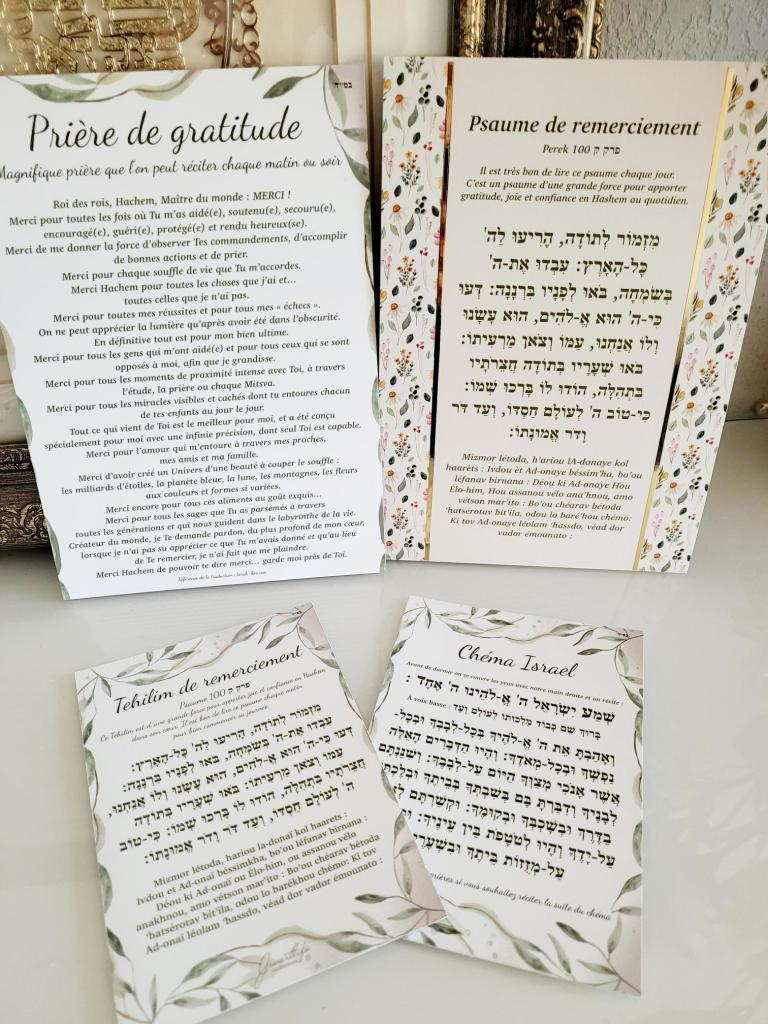 בס״ד
Prière de gratitude
Magnifique prière que l'on peut réciter chaque matin ou soir
Roi des rois, Hachem, Maître du monde : MERCI !
Merci pour toutes les fois où Tu m'as aidé(e), soutenu(e), secouru(e),
encouragé(e), guéri(e), protégé(e) et rendu heureux(se).
Merci de me donner la force d'observer Tes commandements, d'accomplir
de bonnes actions et de prier.
Merci pour chaque souffle de vie que Tu m'accordes.
Merci Hachem pour toutes les choses que j'ai et...
toutes celles que je n'ai pas.
Merci pour toutes mes réussites et pour tous mes « échecs ».
On ne peut apprécier la lumière qu'après avoir été dans l'obscurité.
En définitive tout est pour mon bien ultime.
Merci pour tous les gens qui m'ont aidé(e) et pour tous ceux qui se sont
opposés à moi, afin que je grandisse.
Merci pour tous les moments de proximité intense avec Toi, à travers
l'étude, la prière ou chaque Mitsva.
Merci pour tous les miracles visibles et cachés dont tu entoures chacun
de tes enfants au jour le jour.
Tout ce qui vient de Toi est le meilleur pour moi, et a été conçu
spécialement pour moi avec une infinie précision, dont seul Toi est capable.
Merci pour l'amour qui m'entoure à travers mes proches,
mes amis et ma famille.
Merci d'avoir créé un Univers d'une beauté à couper le souffle :
les milliards d'étoiles, la planète bleue, la lune, les montagnes, les fleurs
aux couleurs et formes si variées.
Merci encore pour tous ces aliments au goût exquis...
Merci pour tous les sages que Tu as parsemés à travers
toutes les générations et qui nous guident dans le labyrinthe de la vie.
Créateur du monde, je Te demande pardon, du plus profond de mon cœur,
lorsque je n'ai pas su apprécier ce que Tu m'avais donné et qu'au lieu
de Te remercier, je n'ai fait que me plaindre.
Merci Hachem de pouvoir te dire merci... garde moi près de Toi.
Psaume de remerciement
Perek 100 פרק ק
Il est très bon de lire ce psaume chaque jour.
C'est un psaume d'une grande force pour apporter
gratitude, joie et confiance en Hashem au quotidien.
מִזְמוֹר לְתוֹדָה, הָרִיעוּ לַה'
כָּל-הָאָרֶץ: עִבְדוּ אֶת-ה'
בְּשִׂמְחָה, בֹּאוּ לְפָנָיו בִּרְנָנָה: דְּעוּ
כִּי-ה' הוּא אֱ-לֹהִים, הוּא עָשָׂנוּ
וְלוֹ אֲנַחְנוּ, עַמּוֹ וְצֹאן מַרְעִיתוֹ:
בֹּאוּ שְׁעָרָיו בְּתוֹדָה חֲצֵרֹתָיו
בִּתְהִלָּה, הוֹדוּ לוֹ בָּרְכוּ שְׁמוֹ:
כִּי-טוֹב ה' לְעוֹלָם חַסְדּוֹ, וְעַד דֹּר
וָדֹר אֱמוּנָתוֹ:
Mizmor létoda, h'ariou lA-donaye kol
haarèts : Ivdou èt Ad-onaye béssim'ha, bo'ou
léfanav birnana : Déou ki Ad-onaye Hou
Élo-him, Hou assanou vélo ana'hnou, amo
vétson mar'ito : Bo'ou chéarav bétoda
'hatsérotav bit'ila, odou lo baré'hou chémo:
Ki tov Ad-onaye léolam 'hassdo, véad dor
vador émounato :
Tehilim de remerciement
Psaume 100 פרק ק
Ce Tehilim est d'une grande force pour apporter joie et confiance en Hashem
dans son cœur. Il est bon de lire ce psaume chaque matin
pour bien commencer sa journée.
מִזְמוֹר לְתוֹדָה, הָרִיעוּ לַה' כָּל-הָאָרֶץ:
עִבְדוּ אֶת-ה' בְּשִׂמְחָה, בֹּאוּ לְפָנָיו בִּרְנָנָה:
דְּעוּ כִּי-ה' הוּא אֱ-לֹהִים, הוּא עָשָׂנוּ וְלוֹ אֲנַחְנוּ,
עַמּוֹ וְצֹאן מַרְעִיתוֹ: בֹּאוּ שְׁעָרָיו בְּתוֹדָה
חֲצֵרֹתָיו בִּתְהִלָּה, הוֹדוּ לוֹ בָּרְכוּ שְׁמוֹ: כִּי-טוֹב
ה' לְעוֹלָם חַסְדּוֹ, וְעַד דֹּר וָדֹר אֱמוּנָתוֹ:
Mizmor létoda, hariou la-donaï kol haarets :
Ivdou et Ad-onaï béssimkha, bo'ou léfanav birnana :
Déou ki Ad-onaï ou Élo-him, ou assanou vélo
anakhnou, amo vétson mar'ito : Bo'ou chéarav bétoda
'hatsérotav bit'ila, odou lo barékhou chémo: Ki tov
Ad-onaï léolam 'hassdo, véad dor vador émounato :
Chéma Israel
Avant de dormir on se couvre les yeux avec notre main droite et on récite :
שְׁמַע יִשְׂרָאֵל ה' אֱ-לֹהֵינוּ ה' אֶחָד :
À voix basse : בָּרוּךְ שֵׁם כְּבוֹד מַלְכוּתוֹ לְעוֹלָם וָעֶד :
וְאָהַבְתָּ אֵת ה' אֱ-לֹהֶיךָ בְּכָל-לְבָבְךָ וּבְכָל-
נַפְשְׁךָ וּבְכָל-מְאֹדֶךָ: וְהָיוּ הַדְּבָרִים הָאֵלֶּה
אֲשֶׁר אָנֹכִי מְצַוְּךָ הַיּוֹם עַל-לְבָבֶךָ: וְשִׁנַּנְתָּם
לְבָנֶיךָ וְדִבַּרְתָּ בָּם בְּשִׁבְתְּךָ בְּבֵיתֶךָ וּבְלֶכְתְּךָ
בַדֶּרֶךְ וּבְשָׁכְבְּךָ וּבְקוּמֶךָ: וּקְשַׁרְתָּם
עַל-יָדֶךָ וְהָיוּ לְטֹטָפֹת בֵּין עֵינֶיךָ:
עַל-מְזֻזוֹת בֵּיתֶךָ
si vous souhaitez réciter la suite du chéma